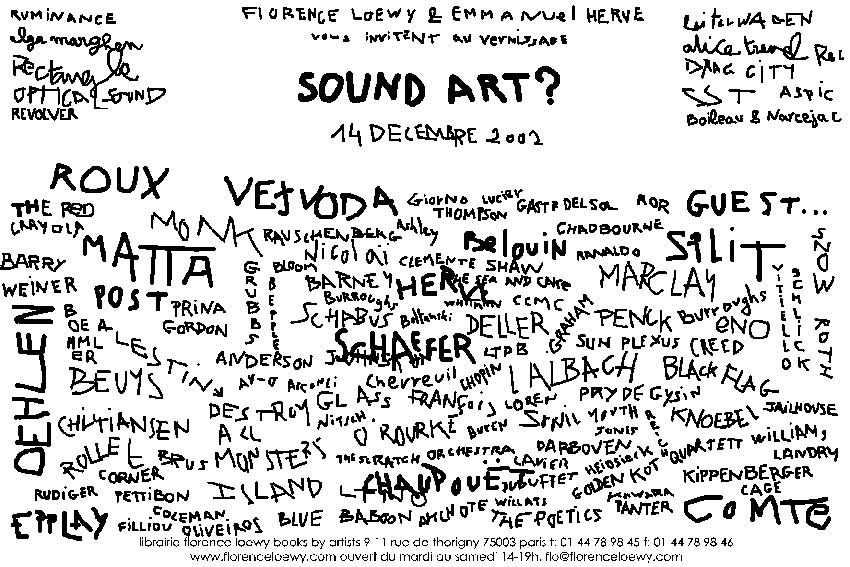 FLORENCE LOEWY & EMMANUEL HERVE
VOUS INVITENT AU VERNISSAGE
SOUND ART?
14 DECEMBRE 2002
RUMINANCE
Rectangle
OPTICAL SOUND
REVOLVER
alice trend Rec
DRAG CITY
SST Aspic
Boileau & Narcejac
ROUX VEJVODA GIORNO LUCIER GASTR DEL SOL ROR GUEST...
THE RED THOMPSON
CRAYOLA MONK RAUSCHENBERG Ashley CHADBOURNE SNOW
MATTA Nicolai Belouin RANALDO SILIT
BARRY GRUBBS BLOOM CLEMENTE SHAW
WEINER BEEPLE BARNEY HERVE THE SEA AND CAKE MARCLAY
POST PRINA Burroughs CCMC VITIELLO SCHLICK
SCHABUS Boltanski DELLER GRAHAM PENCK Burroughs ENO ROTH
GORDON
OEHLEN LESTIN SCHAEFER LTPB SUN PLEXUS CREED
ANDERSON
BEUYS Chevreuil CHOPIN LAIBACH BLACK FLAG
DESTROY GLASS FRANÇois LOREN GYSIN
ALL NITSCH O'ROURKE BUREN KNOEBEL JAILHOUSE
JONES
ROLLEL BRUS MONSTERS THE SCRATCH ORCHESTRA DARBOVEN QUARTETT WILLIAMS
CORNER LAVIER HEIDSIECK LANDRY
RUDIGER PETTIBON ISLAND CHAUPOUET DUBUFFET GOLDEN KOT KIPPENBERGER
KAWARA CAGE
EPPLAY COLEMAN BLUE BABOON WILLATS TANTER COMTE
FILLIOU OLIVEIROS THE POETICS
librairie florence loewy books by artists 9-11 rue de thorigny 75003 paris t: 01 44 78 98 45 f: 01 44 78 98 46
www.florenceloewy.com ouvert du mardi au samedi 14-19h. flo@florenceloewy.com